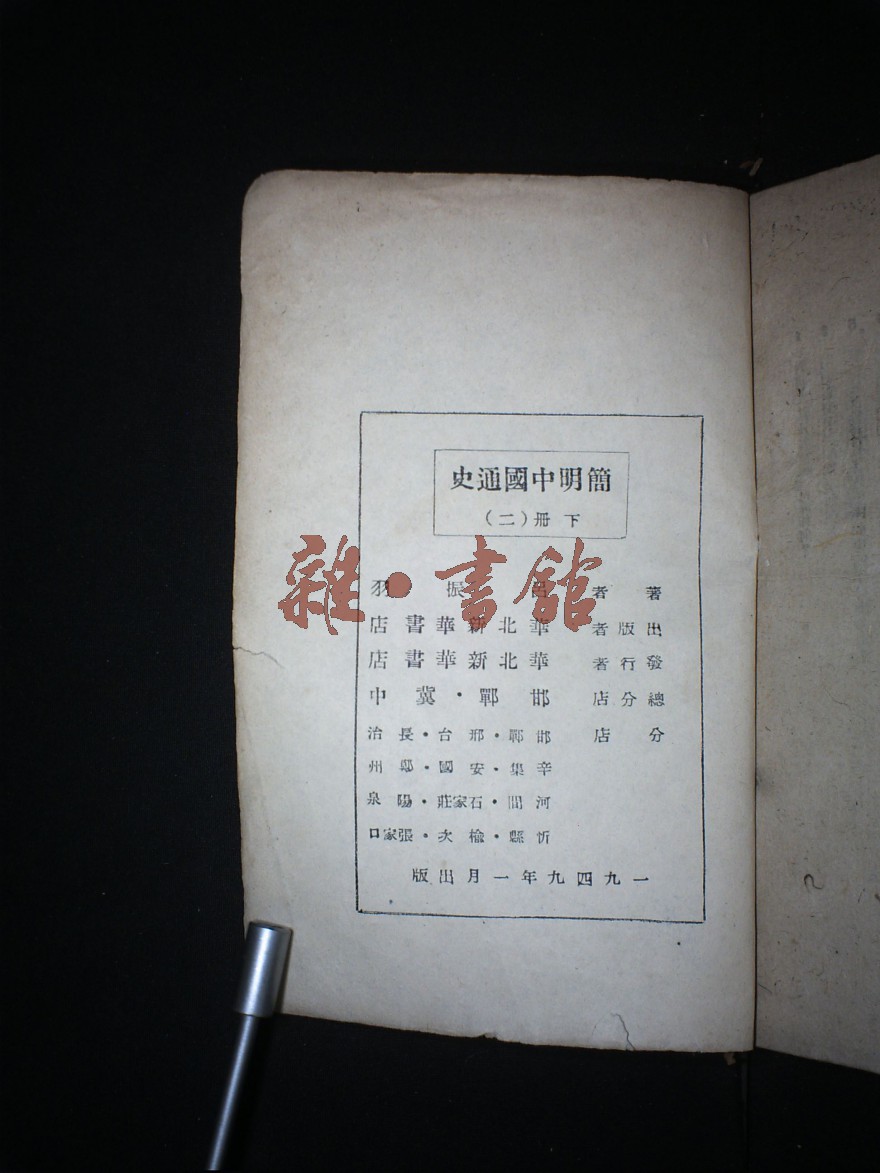 簡明中國通史
下冊（二）
著者 呂振羽
出版者 華北新華書店
發行者 華北新華書店
總分店 邯鄲・冀中
分店 邯鄲・邢台・長治
辛集・安國・鄚州
河間・石家莊・陽泉
忻縣・榆次・張家口
一九四九年一月出版
雜・書館